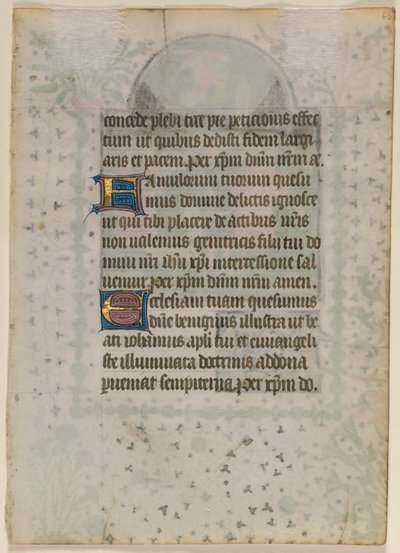 68
concede plebi tue pie peticionis effec
tum ut quibus dedisti fidem largi
aris et pacem. Per xp̄m dn̄m nr̄m ae
Famulorum tuorum quesu
mus domine delictis ignosce
ut qui tibi placere de actibus nr̄is
non ualemus genitricis filii tui do
mini nr̄i ihū xp̄i intercessione sal
uemur. Per xp̄m dn̄m nr̄m amen.
Ecclesiam tuam quesumus
dn̄e benignus illustra ut be
ati iohannis apl̄i tui et euuangeli
ste illuminata doctrinis ad dona
ꝑueniat sempiterna. Per xp̄m do.